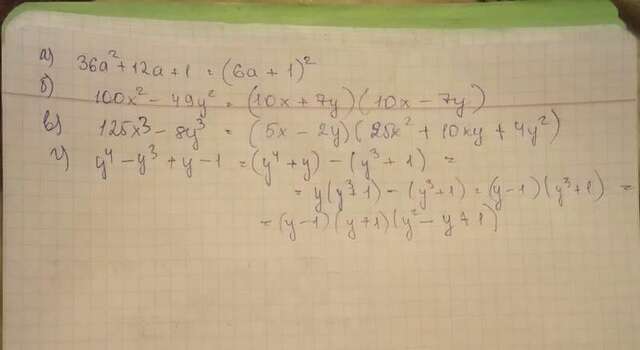 а) 36a² + 12a + 1 = (6a + 1)²
б) 100x² - 49y² = (10x + 7y)(10x - 7y)
в) 125x³ - 8y³ = (5x - 2y)(25x² + 10xy + 4y²)
г) y⁴ - y³ + y - 1 = (y⁴ + y) - (y³ + 1) =
= y(y³ + 1) - (y³ + 1) = (y - 1)(y³ + 1) =
= (y - 1)(y + 1)(y² - y + 1)